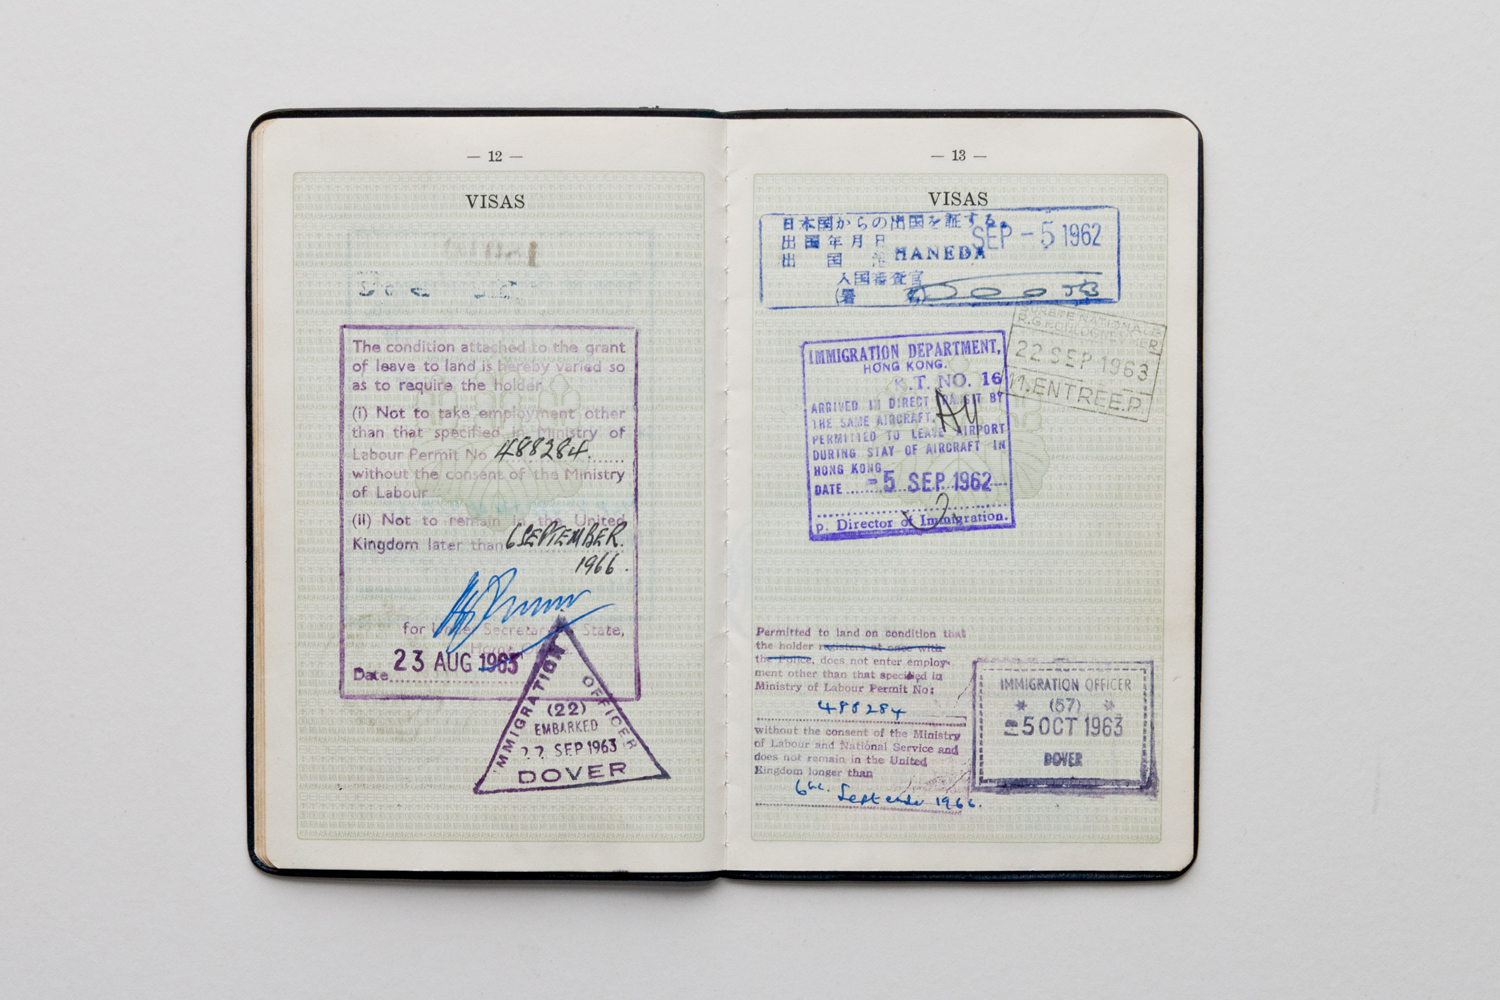 — 12 —
VISAS
The condition attached to the grant
of leave to land is hereby varied so
as to require the holder
(i) Not to take employment other
than that specified in Ministry of
Labour Permit No 488284.
without the consent of the Ministry
of Labour
(ii) Not to remain in the United
Kingdom later than 6 SEPTEMBER.
1966.
for Under Secretary of State,
Date 23 AUG 1963
IMMIGRATION OFFICER
(22)
EMBARKED
22 SEP 1963
DOVER
— 13 —
VISAS
日本国からの出国を証する。
SEP - 5 1962
出国年月日
出国港 HANEDA
入国審査官
(署
IMMIGRATION DEPARTMENT,
HONG KONG.
K.T. NO. 16
ARRIVED IN DIRECT TRANSIT BY
THE SAME AIRCRAFT.
PERMITTED TO LEAVE AIRPORT
DURING STAY OF AIRCRAFT IN
HONG KONG
DATE - 5 SEP 1962
p. Director of Immigration.
22 SEP 1963
11.ENTREE.P.
Permitted to land on condition that
the holder registers at once with
the Police, does not enter employ-
ment other than that specified in
Ministry of Labour Permit No:
488284
without the consent of the Ministry
of Labour and National Service and
does not remain in the United
Kingdom longer than
6th. September 1966.
IMMIGRATION OFFICER
* (57) *
- 5 OCT 1963
DOVER